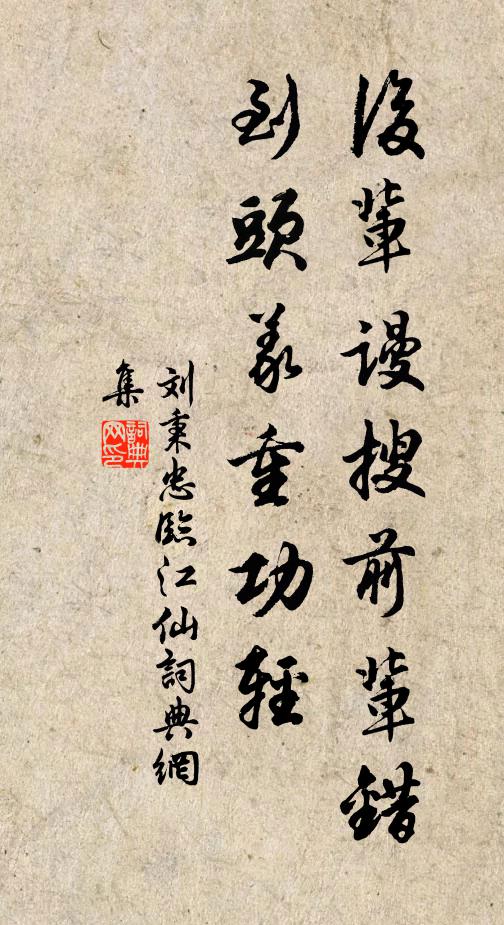 後輩謾搜前輩錯
到頭義重功輕
刘秉忠臨江仙詞典網
集
詞典网印